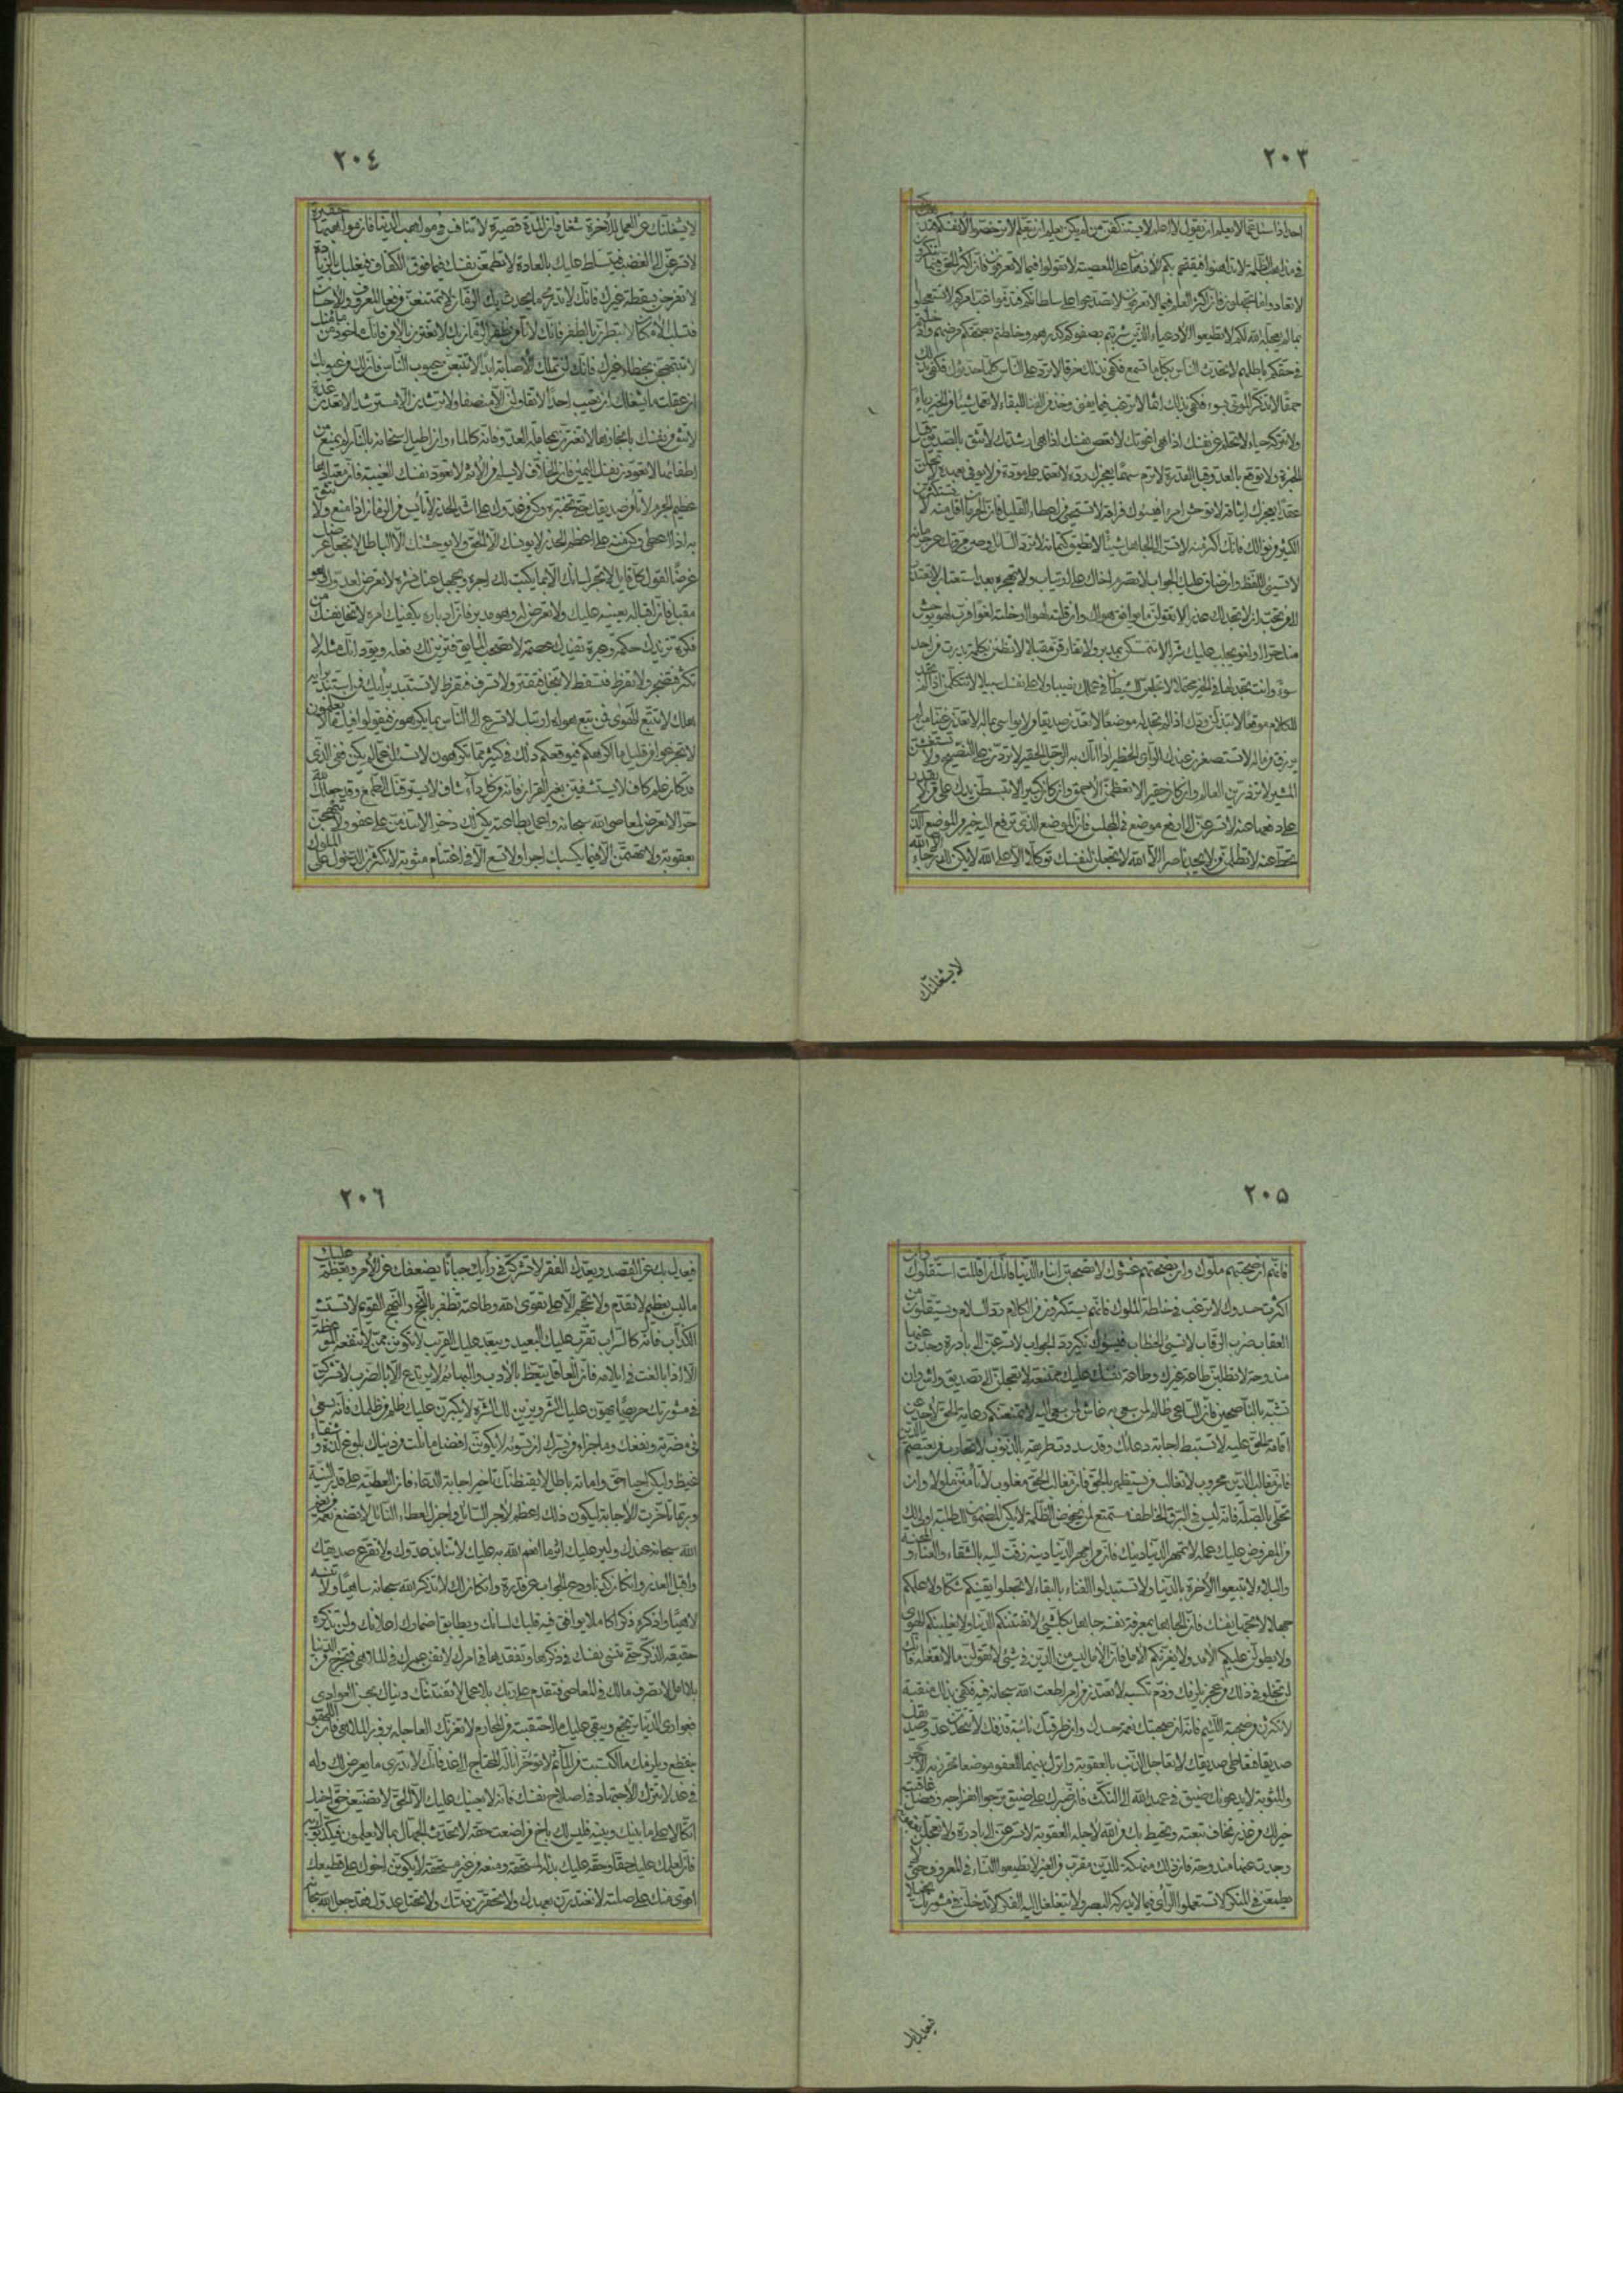 ٢٠٣
احدا اذا سئل عما لا يعلم ان يقول لا اعلم لا يستنكفن من لم يكن يعلم ان يتعلم لا ترخصوا لانفسكم
في مذاهب الظلمة لا تداهنوا فيقتحم بكم الادهان على المعصية لا تقولوا فيما لا تعرفون فان اكثر الحق فيما تنكرون
لا تعادوا ما تجهلون فان اكثر العلم فيما لا تعرفون لا تصدعوا على سلطانكم فتذموا غب امركم لا تستعجلوا
بما لم يعجله الله لكم لا تطيعوا الادعياء الذين شربتم بصفوكم كدرهم وخلطتم بصحتكم مرضهم وادخلتم
في حقكم باطلهم لا تحدث الناس بكل ما تسمع فكفى بذلك خرقا لا ترد على الناس كلما حدثوك فكفى بذلك
حمقا لا تذكر الموتى بسوء فكفى بذلك اثما لا ترغب فيما يفنى وخذ من الفناء للبقاء لا تعمل شيئا من الخير رياء
ولا تتركه حياء لا تحلم عن نفسك اذا هي اغوتك لا تعص نفسك اذا هي ارشدتك لا تثق بالصديق قبل
الخبرة ولا توقع بالعدو قبل القدرة لا ترم سهما يعجزك رده لا تعتمد على مودة من لا يوفى بعهده لا تحلن
عقدا يعجزك ايثاقه لا توحش امرا يسوءك فراقه لا تستحيي من اعطاء القليل فان الحرمان اقل منه لا تستكثرن
الكثير من نوالك فانك اكثر منه لا تسرن الى الجاهل شيئا لا يطيق كتمانه لا ترد السائل وصن مروتك عن حرمانه
لا تسيئ اللفظ وان ضاق عليك الجواب لا تصرم اخاك على ارتياب ولا تهجره بعد استعتاب لا تعتذر
الى من يحب ان لا يجد لك عذرا لا تقولن ما يوافق هواك وان قلته لهوا او خلته لغوا فرب لهو يوحش
منك حرا ولغو يجلب عليك شرا لا تتمسكن بمدبر ولا تفارقن مقبلا لا تظنن بكلمة بدرت من احد
سوءا وانت تجد لها في الخير محتملا لا تجعلن للشيطان في عملك نصيبا ولا على نفسك سبيلا لا تتكلمن اذا لم تجد
للكلام موقعا لا تبذلن ودك اذا لم تجد له موضعا لا تعدن صديقا من لا يواسى بماله لا تعدن غنيا من لم
يرزق من ماله لا تستصغرن عندك الراى الخطير اذا اتاك به الرجل الحقير لا تردن على النصيح ولا تستغشن
المشير لا تزدرين العالم وان كان حقيرا لا تعظمن الاحمق وان كان كبيرا لا تبسطن يدك على من لا يقدر
على دفعها عنه لا تسرعن الى ارفع موضع في المجلس فان الموضع الذى ترفع اليه خير من الموضع الذى
تحط عنه لا تظلمن من لا يجد ناصرا الا الله لا تجعلن لنفسك توكلا الا على الله لا يكن لك رجاء الا الله
لا يشغلنك
٢٠٤
لا يشغلنك عن العمل للاخرة شغل فان المدة قصيرة لا تنافس في مواهب الدنيا فان مواهبها حقيرة
لا تسرعن الى الغضب فيتسلط عليك بالعادة لا تطمعن نفسك فيما فوق الكفاف فيغلبك بالزيادة
لا تفرحن بسقطة غيرك فانك لا تدرى ما يحدث بك الزمان لا تمتنعن من فعل المعروف والاحسان
فتسلب الامكان لا تبطرن بالظفر فانك لا تأمن ظفر الزمان بك لا تغترن بالامن فانك مأخوذ من مأمنك
لا تبتهجن بخطاء غيرك فانك لن تملك الاصابة ابدا لا تتبعن عيوب الناس فان لك من عيوبك
ان عقلت ما يشغلك ان تعيب احدا لا تقاولن الا منصفا ولا ترشدن الا مسترشدا لا تعدن عدة
لا تثق من نفسك بانجازها لا تغترن بمجاملة العدو فانه كالماء وان اطيل اسخانه بالنار لم يمنع من
اطفائها لا تعود نفسك اليمين فان الحلاف لا يسلم من الاثم لا تعود نفسك الغيبة فان معتادها
عظيم الجرم لا تأمن صديقك حتى تختبره وكن من عدوك على اشد الحذر لا تأيس من الزمان اذا منع ولا تثق
به اذا اعطى وكن منه على اعظم الحذر لا يونسك الا الحق ولا يوحشنك الا الباطل لا تجعل عرضك
غرضا لقول كل قايل لا تجر لسانك الا بما يكتب لك اجره ويجمل عنك نشره لا تعرض لعدوك وهو
مقبل فان اقباله يعينه عليك ولا تعرض له وهو مدبر فان ادباره يكفيك امره لا تخل نفسك من
فكرة تزيدك حكمة وعبرة تفيدك عصمة لا تصحب المايق فيزين لك فعله ويود انك مثله لا
تكثر فتضجر ولا تفرط فتسقط لا تبخل فتقتر ولا تسرف فتفرط لا تستبد برأيك فمن استبد برأيه
هلك لا تتبع الهوى فمن تبع هواه ارتبك لا تسرع الى الناس بما يكرهون فيقولوا فيك ما لا يعلمون
لا تجزعوا من قليل ما اكرهكم فيوقعكم ذلك في كثير مما تكرهون لا تسئل عما لم يكن ففى الذى
قد كان علم كاف لا تستشفين بغير القرآن فانه من كل داء شاف لا يسترقنك الطمع وقد جعلك الله
حرا لا تعرض لمعاصى الله سبحانه واعمل بطاعته يكن لك ذخرا لا تندمن على عفو ولا تبهجن
بعقوبة ولا تهتمن الا فيما يكسبك اجرا ولا تسع الا في اغتنام مثوبة لا تكثرن الدخول على الملوك
٢٠٥
فانهم ان صحبتهم ملوك وان نصحتهم غشوك لا تصحبن ابناء الدنيا فانك ان اقللت استقلوك وان
اكثرت حسدوك لا ترغب في خلطة الملوك فانهم يستكثرون من الكلام رد السلام ويستقلون من
العقاب ضرب الرقاب لا تسيئ الخطاب فيسوءك نكير رد الجواب لا تسرعن الى بادرة وجدت عنها
مندوحة لا تطلبن طاعة غيرك وطاعة نفسك عليك ممتنعة لا تعجلن الى تصديق واش وان
تشبه بالناصحين فان الساعى ظالم لمن سعى به غاش لمن سعى اليه لا تمنعنكم رعاية الحق لاحد عن
اقامة الحق عليه لا تستبطئ اجابة دعائك وقد سددت طريقه بالذنوب لا تحارب من يعتصم بالدين
فان مغالب الدين محروب لا تغالب من يستظهر بالحق فان مغالب الحق مغلوب لا تأمنن ملولا وان
تحلى بالصلة فانه ليس في البرق الخاطف مستمتع لمن يخوض الظلمة لا يكن المضمون لك طلبه اولى بك
من المفروض عليك عمله لا تمهر الدنيا دينك فان من امهر الدنيا دينه زفت اليه بالشقاء والعناء والمحنة
والبلاء لا تبيعوا الاخرة بالدنيا ولا تستبدلوا الفناء بالبقاء لا تجعلوا يقينكم شكا ولا علمكم
جهلا لا تجهل نفسك فان الجاهل بمعرفة نفسه جاهل بكل شيئ لا تفتننكم الدنيا ولا يغلبنكم الهوى
ولا يطولن عليكم الامد ولا يغرنكم الامل فان الامل ليس من الدين في شئ لا تقولن ما لا تفعله فانك
لن تخلو في ذلك من عجز يلزمك وذم تكسبه لا تعتذر من امر اطعت الله سبحانه فيه فكفى بذلك منقبة
لا تكثرن من صحبة اللئيم فانه ان صحبتك نعمة حسدك وان طرقتك نائبة قذفك لا تتخذن عدو صديقك
صديقا فتعادى صديقك لا تعاجل الذنب بالعقوبة واترك بينهما للعفو موضعا تحرز به الاجر
والمثوبة لا يدعونك ضيق في عهد الله الى النكث فان صبرك على ضيق ترجوا انفراجه وفضل عاقبته
خير لك من غدر تخاف تبعته وتحيط بك من الله لاجله العقوبة لا تسرعن الى بادرة ولا تعجلن بعقوبة
وجدت عنها مندوحة فان ذلك منهكة للدين مقرب من الغير لا تطيعوا النساء في المعروف حتى لا
يطمعن في المنكر لا تستعملوا الرأى فيما لا يدركه البصر ولا يتغلغل اليه الفكر لا تدخلن في مشورتك بخيلا
فيعدل بك
٢٠٦
فيعدل بك عن القصد ويعدك الفقر لا تشركن في رأيك جبانا يضعفك عن الامر ويعظم عليك
ما ليس بعظيم لا تقدم ولا تحجم الا على تقوى الله وطاعته تظفر بالنجح والنهج القويم لا تستشر
الكذاب فانه كالسراب يقرب عليك البعيد ويبعد عليك القريب لا تكونن ممن لا تنفعه الموعظة
الا اذا بالغت في ايلامه فان العاقل يتعظ بالادب والبهائم لا يرتدع الا بالضرب لا تشركن
في مشورتك حريصا يهون عليك الشر ويزين لك الشره لا يكبرن عليك ظلم من ظلمك فانه يسعى
في مضرته ونفعك وما جزاء من يسرك ان تسوءه لا يكونن افضل ما نلت من دنياك بلوغ لذة وشفاء
غيظ وليكن احياء حق واماتة باطل لا يقنطنك تاخير اجابة الدعاء فان العطية على قدر النية
وربما تأخرت الاجابة ليكون ذلك اعظم لاجر السائل واجزل لعطاء النائل لا تضيع نعمة من نعم
الله سبحانه عندك ولير عليك اثر ما انعم الله به عليك لا تنابذ عدوك ولا تقرع صديقك
واقبل العذر وان كان كذبا ودع الجواب عن قدرة وان كان لك لا تذكر الله سبحانه ساهيا ولا تنسه
لاهيا واذكره ذكرا كاملا يوافق فيه قلبك لسانك ويطابق اضمارك اعلانك ولن تذكره
حقيقة الذكر حتى تنسى نفسك في ذكرك وتفقدها في امرك لا تفن عمرك في الملاهى فتخرج من الدنيا
بلا امل لا تصرف مالك في المعاصى فتقدم على ربك بلا عمل لا تفتننك دنياك بحسن العوارى
فعوارى الدنيا ترتجع ويبقى عليك ما احتقبته من المحارم لا تغرنك العاجلة بزور الملاهى فان اللهو
ينقطع ويلزمك ما اكتسبت من المآثم لا تؤخر انالة المحتاج الى غد فانك لا تدرى ما يعرض لك وله
في غد لا تترك الاجتهاد في اصلاح نفسك فانه لا يعينك عليك الا الجد لا تضيعن حق اخيك
اتكالا على ما بينك وبينه فليس لك باخ من اضعت حقه لا تحدث الجهال بما لا يعلمون فيكذبوك به
فان لعلمك عليك حقا وحقه عليك بذله لمستحقه ومنعه من غير مستحقه لا يكونن اخوك على قطيعتك
اقوى منك على صلته لا تغدرن بعهدك ولا تخفرن ذمتك ولا تختل عدوك فقد جعل الله سبحانه